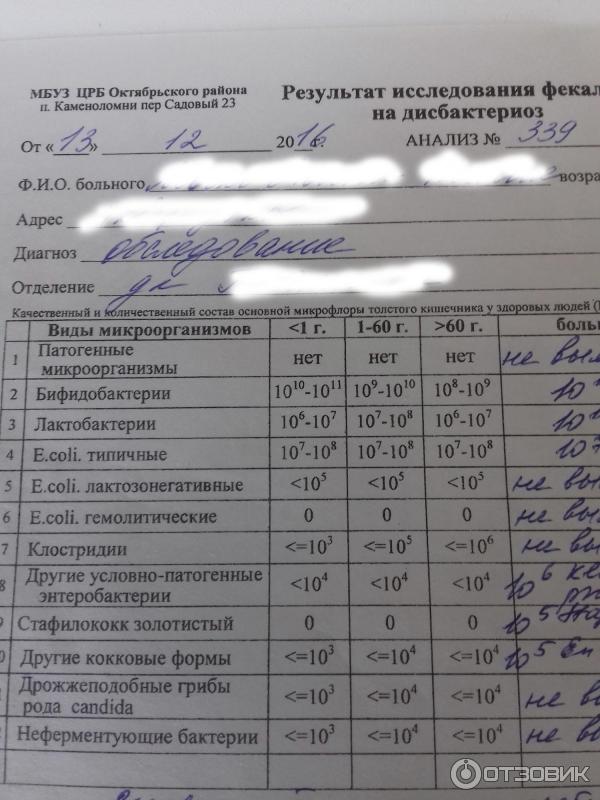 МБУЗ ЦРБ Октябрьского района
п. Каменоломни пер Садовый 23
Результат исследования фекал
на дисбактериоз
От «13» 12 2016г. АНАЛИЗ № 339
Ф.И.О. больного возра
Адрес
Диагноз обследование
Отделение
Качественный и количественный состав основной микрофлоры толстого кишечника у здоровых людей
Виды микроорганизмов <1 г. 1-60 г. >60 г. боль
1 Патогенные микроорганизмы нет нет нет не вы
2 Бифидобактерии 10¹⁰-10¹¹ 10⁹-10¹⁰ 10⁸-10⁹ 10
3 Лактобактерии 10⁶-10⁷ 10⁷-10⁸ 10⁶-10⁷ 10
4 E.coli. типичные 10⁷-10⁸ 10⁷-10⁸ 10⁷-10⁸ 10⁷
5 E.coli. лактозонегативные <10⁵ <10⁵ <10⁵ не вы
6 E.coli. гемолитические 0 0 0 не вы
7 Клостридии <=10³ <=10⁵ <=10⁶ не вы
8 Другие условно-патогенные энтеробактерии <10⁴ <10⁴ <10⁴ 10⁶
Стафилококк золотистый 0 0 0 10⁵
0 Другие кокковые формы <=10³ <=10⁴ <=10⁴ 10⁵
Дрожжеподобные грибы рода candida <=10³ <=10⁴ <=10⁴ не вы
Неферментующие бактерии <=10³ <=10⁴ <=10⁴ не вы
ОТЗОВИК